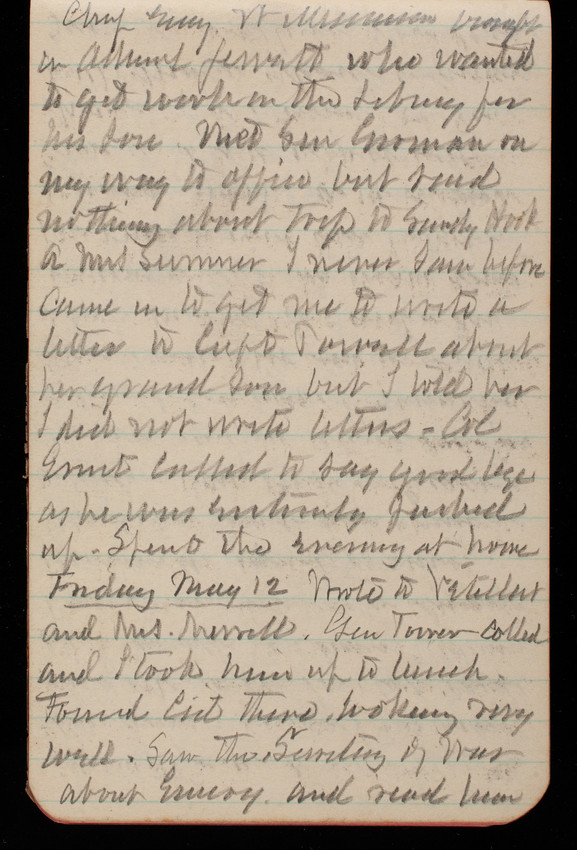 Chf Eng. brought
in Admiral who wanted
to get work on the Library for
his son. Met Gen Groman on
my way to office but said
nothing about trip to Sandy Hook
A Mrs Sumner I never saw before
came in to get me to write a
letter to Capt Powell about
her grand son but I told her
I did not write letters - Col
Ernst called to say good bye
as he was entirely packed
up. Spent the evening at home
Friday May 12 Wrote to
and Mrs. Merrill. Gen Tower called
and I took him up to lunch.
Found there, looking very
well. Saw the Secretary of War
about Emory and read him